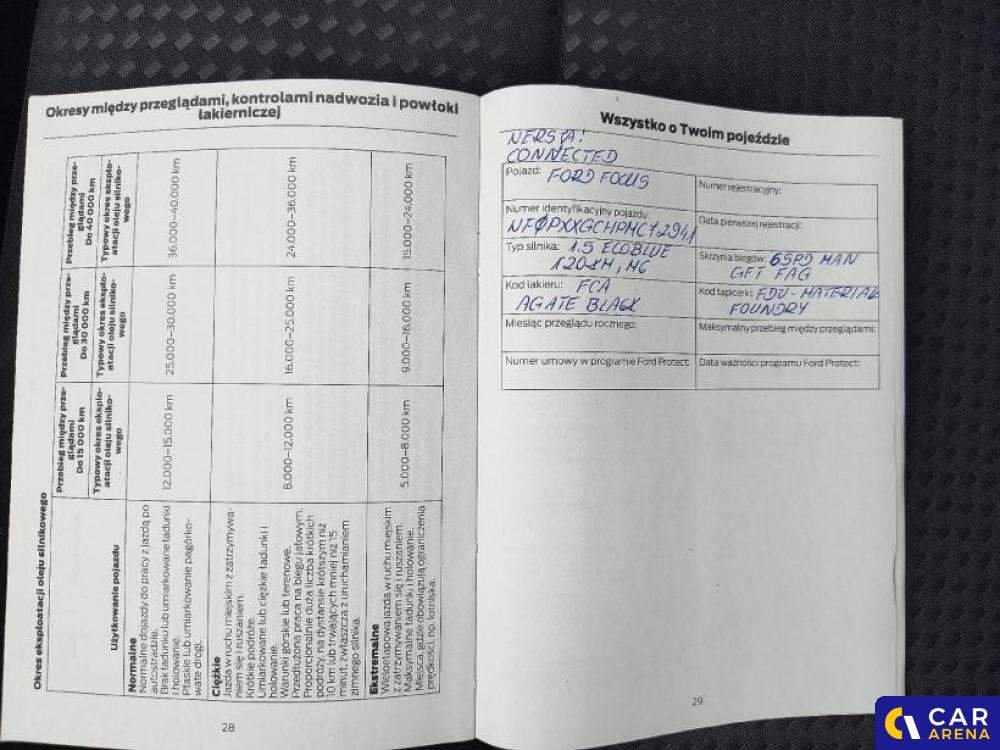 Okresy między przeglądami, kontrolami nadwozia i powłoki
lakierniczej
Okres eksploatacji oleju silnikowego
Użytkowanie pojazdu
Przebieg między prze-
glądami
Do 15 000 km
Przebieg między prze-
glądami
Do 30 000 km
Przebieg między prze-
glądami
Do 40 000 km
Typowy okres eksplo-
atacji oleju silniko-
wego
Typowy okres eksplo-
atacji oleju silniko-
wego
Typowy okres eksplo-
atacji oleju silniko-
wego
Normalne
Normalne dojazdy do pracy z jazdą po
autostradzie.
Brak ładunku lub umiarkowane ładunki
i holowanie.
Płaskie lub umiarkowanie pagórko-
wate drogi.
12.000–15.000 km
25.000–30.000 km
36.000–40.000 km
Ciężkie
Jazda w ruchu miejskim z zatrzymywa-
niem się i ruszaniem.
Krótkie podróże.
Umiarkowane lub ciężkie ładunki i
holowanie.
Warunki górskie lub terenowe.
Przedłużona praca na biegu jałowym.
Proporcjonalnie duża liczba krótkich
podróży, na dystansie krótszym niż
10 km lub trwających mniej niż 15
minut, zwłaszcza z uruchamianiem
zimnego silnika.
8.000–12.000 km
16.000–25.000 km
24.000–36.000 km
Ekstremalne
Wieloetapowa jazda w ruchu miejskim
z zatrzymywaniem się i ruszaniem.
Maksymalne ładunki i holowanie.
Miejsca, gdzie obowiązują ograniczenia
prędkości, np. lotniska.
5.000–8.000 km
9.000–16.000 km
15.000–24.000 km
28
Wszystko o Twoim pojeździe
CONNECTED
Pojazd: FORD FOCUS
Numer rejestracyjny:
Numer identyfikacyjny pojazdu:
Data pierwszej rejestracji:
Typ silnika: 1.5 ECOBLUE
120KM, M6
Skrzynia biegów: 6SPD MAN
GFT FAG
Kod lakieru: FCA
AGATE BLACK
Kod tapicerki: FDU - MATERIAL
FOUNDRY
Miesiąc przeglądu rocznego:
Maksymalny przebieg między przeglądami:
Numer umowy w programie Ford Protect:
Data ważności programu Ford Protect:
29
CAR
ARENA